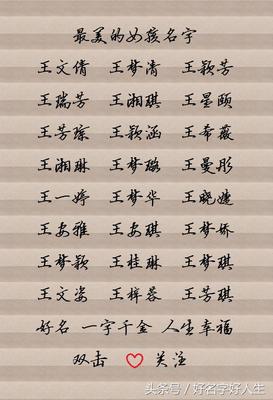 最美的女孩名字
王文倩 王梦清 王颖芳
王瑞芳 王湘琪 王星颐
王芳琼 王颖涵 王希薇
王湘琳 王梦璐 王曼彤
王一婷 王梦华 王晓婕
王安雅 王安琪 王梦娇
王梦颖 王桂琳 王梦琪
王文姿 王梓蓉 王芳琪
好名 一字千金 人生幸福
双击 关注
头条号/好名字好人生